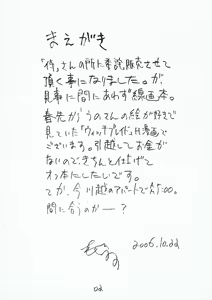 まえがき
「侍」さんの所に委託販売させて
頂く事になりました。が、
見事に間にあわず線画本。
春先から うのさんの絵が好きで
見ていた「ウィッチブレイド」H漫画で
ございます。引越してお金が
ないので、きちんと仕上げて
オフ本にしたいです。
てか、今川越のアパートでAM5:00。
間に合うのかー?
2006.10.22
02